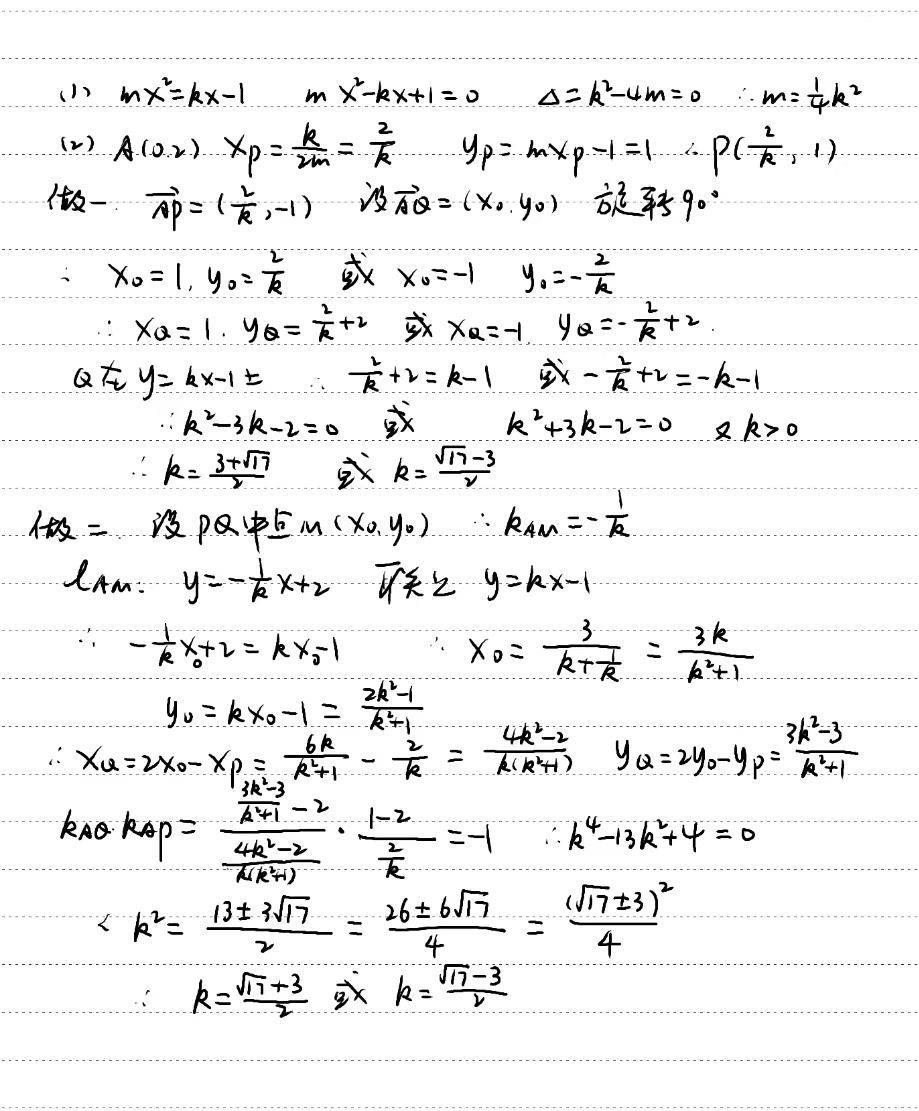 (1) mx²=kx-1 mx²-kx+1=0 Δ=k²-4m=0 ∴m=\frac{1}{4}k²
(2) A(0.2) x_P=\frac{k}{2m}=\frac{2}{k} y_P=mx_P-1=1 ∴P(\frac{2}{k},1)
做一. \vec{AP}=(\frac{2}{k},-1) 设\vec{AQ}=(x₀,y₀) 旋转90°
∴ x₀=1, y₀=\frac{2}{k} 或 x₀=-1 y₀=-\frac{2}{k}
∴ x_Q=1. y_Q=\frac{2}{k}+2 或 x_Q=-1 y_Q=-\frac{2}{k}+2.
Q在 y=kx-1上 ∴ \frac{2}{k}+2=k-1 或 -\frac{2}{k}+2=-k-1
∴k²-3k-2=0 或 k²+3k-2=0 又 k>0
∴ k=\frac{3+\sqrt{17}}{2} 或 k=\frac{\sqrt{17}-3}{2}
做二. 设 PQ中点M(x₀,y₀) ∴ k_{AM}=-\frac{1}{k}
l_{AM}: y=-\frac{1}{k}x+2 联立 y=kx-1
∴ -\frac{1}{k}x₀+2=kx₀-1 ∴ x₀=\frac{3}{k+\frac{1}{k}}=\frac{3k}{k²+1}
y₀=kx₀-1=\frac{2k²-1}{k²+1}
∴ x_Q=2x₀-x_P=\frac{6k}{k²+1}-\frac{2}{k}=\frac{4k²-2}{k(k²+1)} y_Q=2y₀-y_P=\frac{3k²-3}{k²+1}
k_{AQ}·k_{AP}=\frac{\frac{3k²-3}{k²+1}-2}{\frac{4k²-2}{k(k²+1)}}·\frac{1-2}{\frac{2}{k}}=-1 ∴k⁴-13k²+4=0
∴ k²=\frac{13±3\sqrt{17}}{2}=\frac{26±6\sqrt{17}}{4}=\frac{(\sqrt{17}±3)²}{4}
∴ k=\frac{\sqrt{17}+3}{2} 或 k=\frac{\sqrt{17}-3}{2}